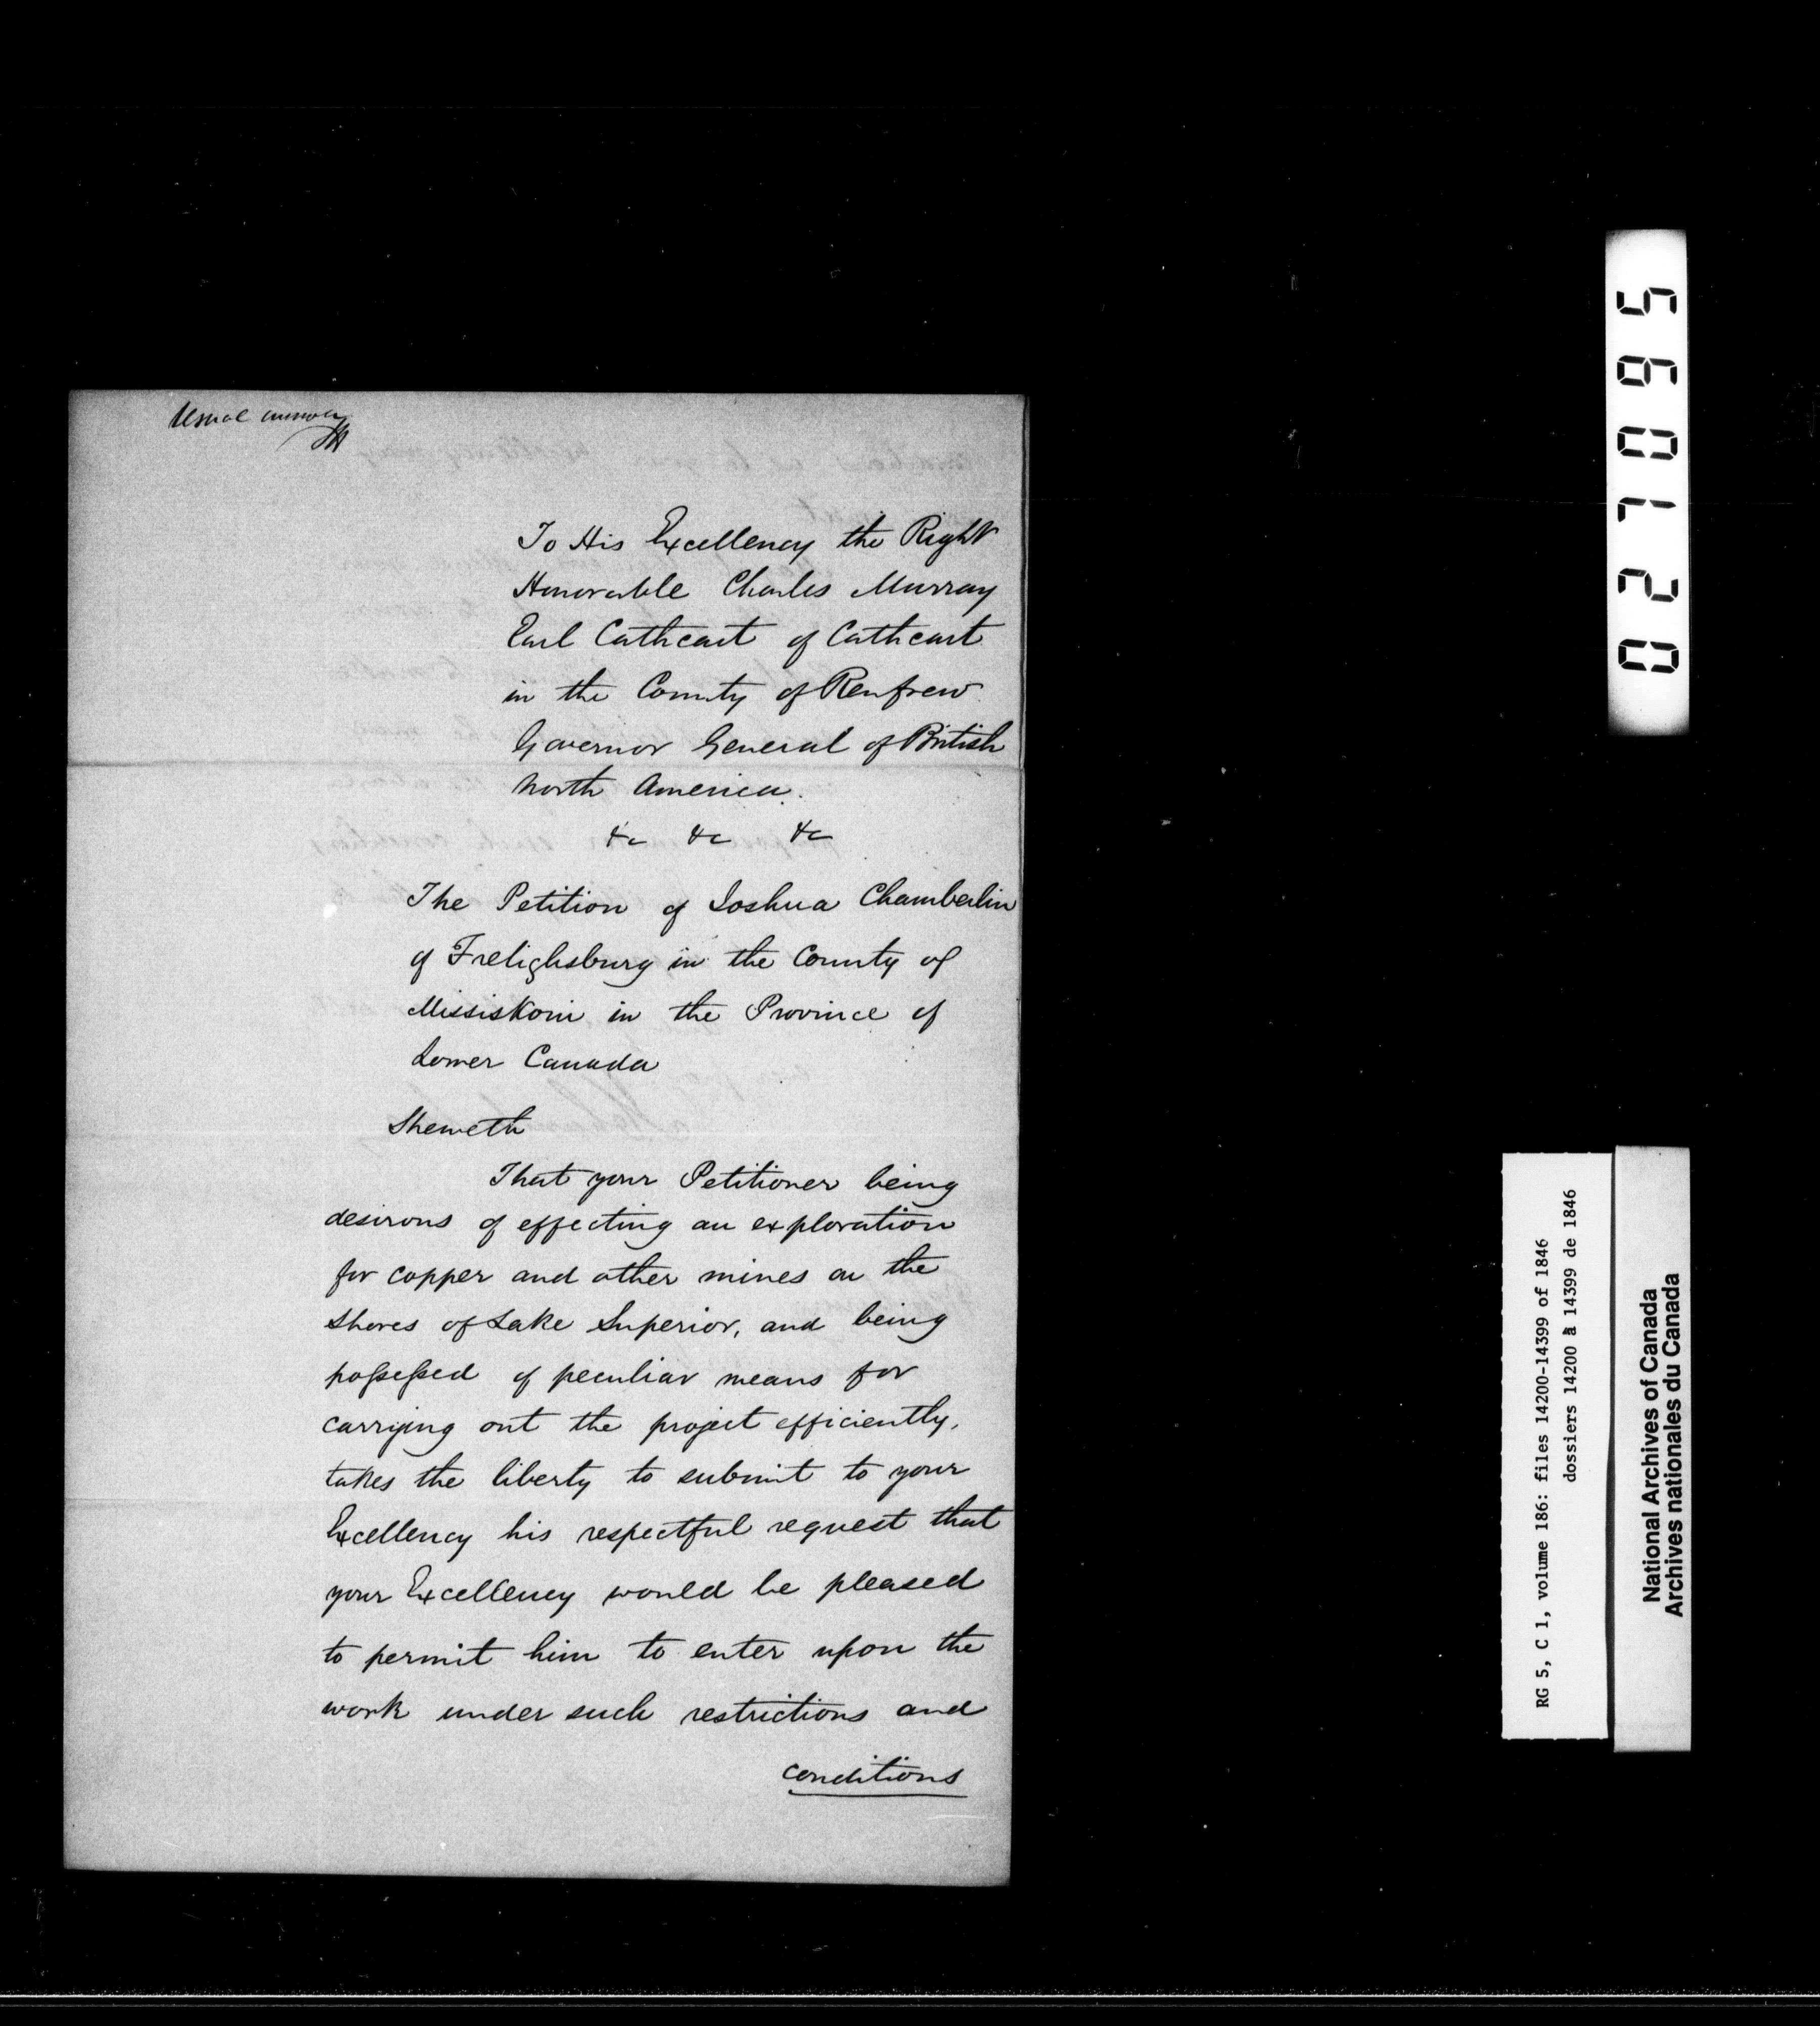 Usual answer
To His Excellency the Right
Honorable Charles Murray
Earl Cathcart of Cathcart
in the County of Renfrew
Governor General of British
North America.
&c &c &c
The Petition of Joshua Chamberlin
of Frelighsburg in the County of
Missiskoui in the Province of
Lower Canada
Sheweth
That your Petitioner being
desirous of effecting an exploration
for copper and other mines on the
shores of Lake Superior, and being
possessed of peculiar means for
carrying out the project efficiently,
takes the liberty to submit to your
Excellency his respectful request that
your Excellency would be pleased
to permit him to enter upon the
work under such restrictions and
conditions
027095
RG 5, C 1, volume 186: files 14200-14399 of 1846
dossiers 14200 à 14399 de 1846
National Archives of Canada
Archives nationales du Canada